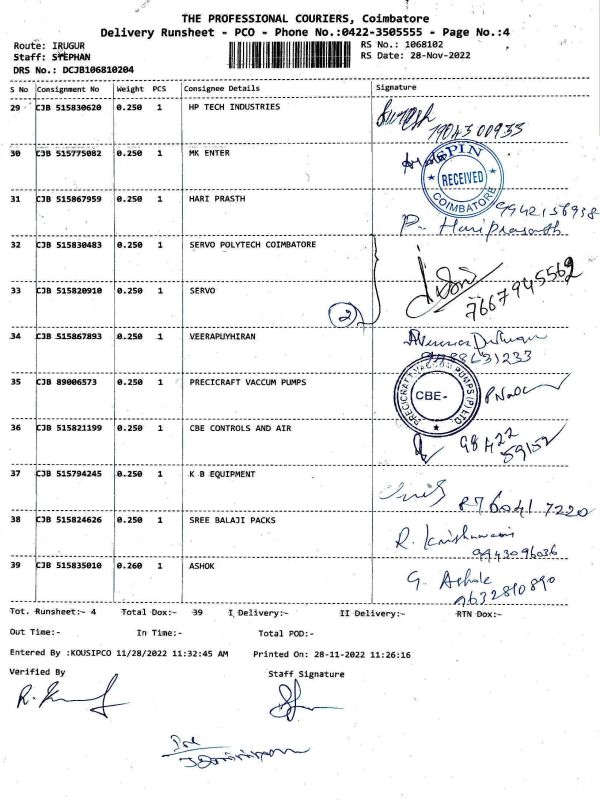 THE PROFESSIONAL COURIERS, Coimbatore
Delivery Runsheet - PCO - Phone No.:0422-3505555 - Page No.:4
Route: IRUGUR
RS No.: 1068102
Staff: STEPHAN
RS Date: 28-Nov-2022
DRS No.: DCJB106810204
S No Consignment No Weight PCS Consignee Details Signature
29 CJB 515830620 0.250 1 HP TECH INDUSTRIES
30 CJB 515775082 0.250 1 MK ENTER
SPIN
RECEIVED
COIMBATORE
31 CJB 515867959 0.250 1 HARI PRASTH
P. Hariprasath
32 CJB 515830483 0.250 1 SERVO POLYTECH COIMBATORE
7667945562
33 CJB 515820910 0.250 1 SERVO
2
34 CJB 515867893 0.250 1 VEERAPUYHIRAN
35 CJB 89006573 0.250 1 PRECICRAFT VACCUM PUMPS
PRECICRAFT VACCUM PUMPS (P) LTD.
CBE-
36 CJB 515821199 0.250 1 CBE CONTROLS AND AIR
98422
59152
37 CJB 515794245 0.250 1 K B EQUIPMENT
876041 7220
38 CJB 515824626 0.250 1 SREE BALAJI PACKS
9943096036
39 CJB 515835010 0.260 1 ASHOK
G. Ashok
9632810890
Tot. Runsheet:- 4 Total Dox:- 39 I Delivery:- II Delivery:- RTN Dox:-
Out Time:- In Time:- Total POD:-
Entered By :KOUSIPCO 11/28/2022 11:32:45 AM Printed On: 28-11-2022 11:26:16
Verified By Staff Signature